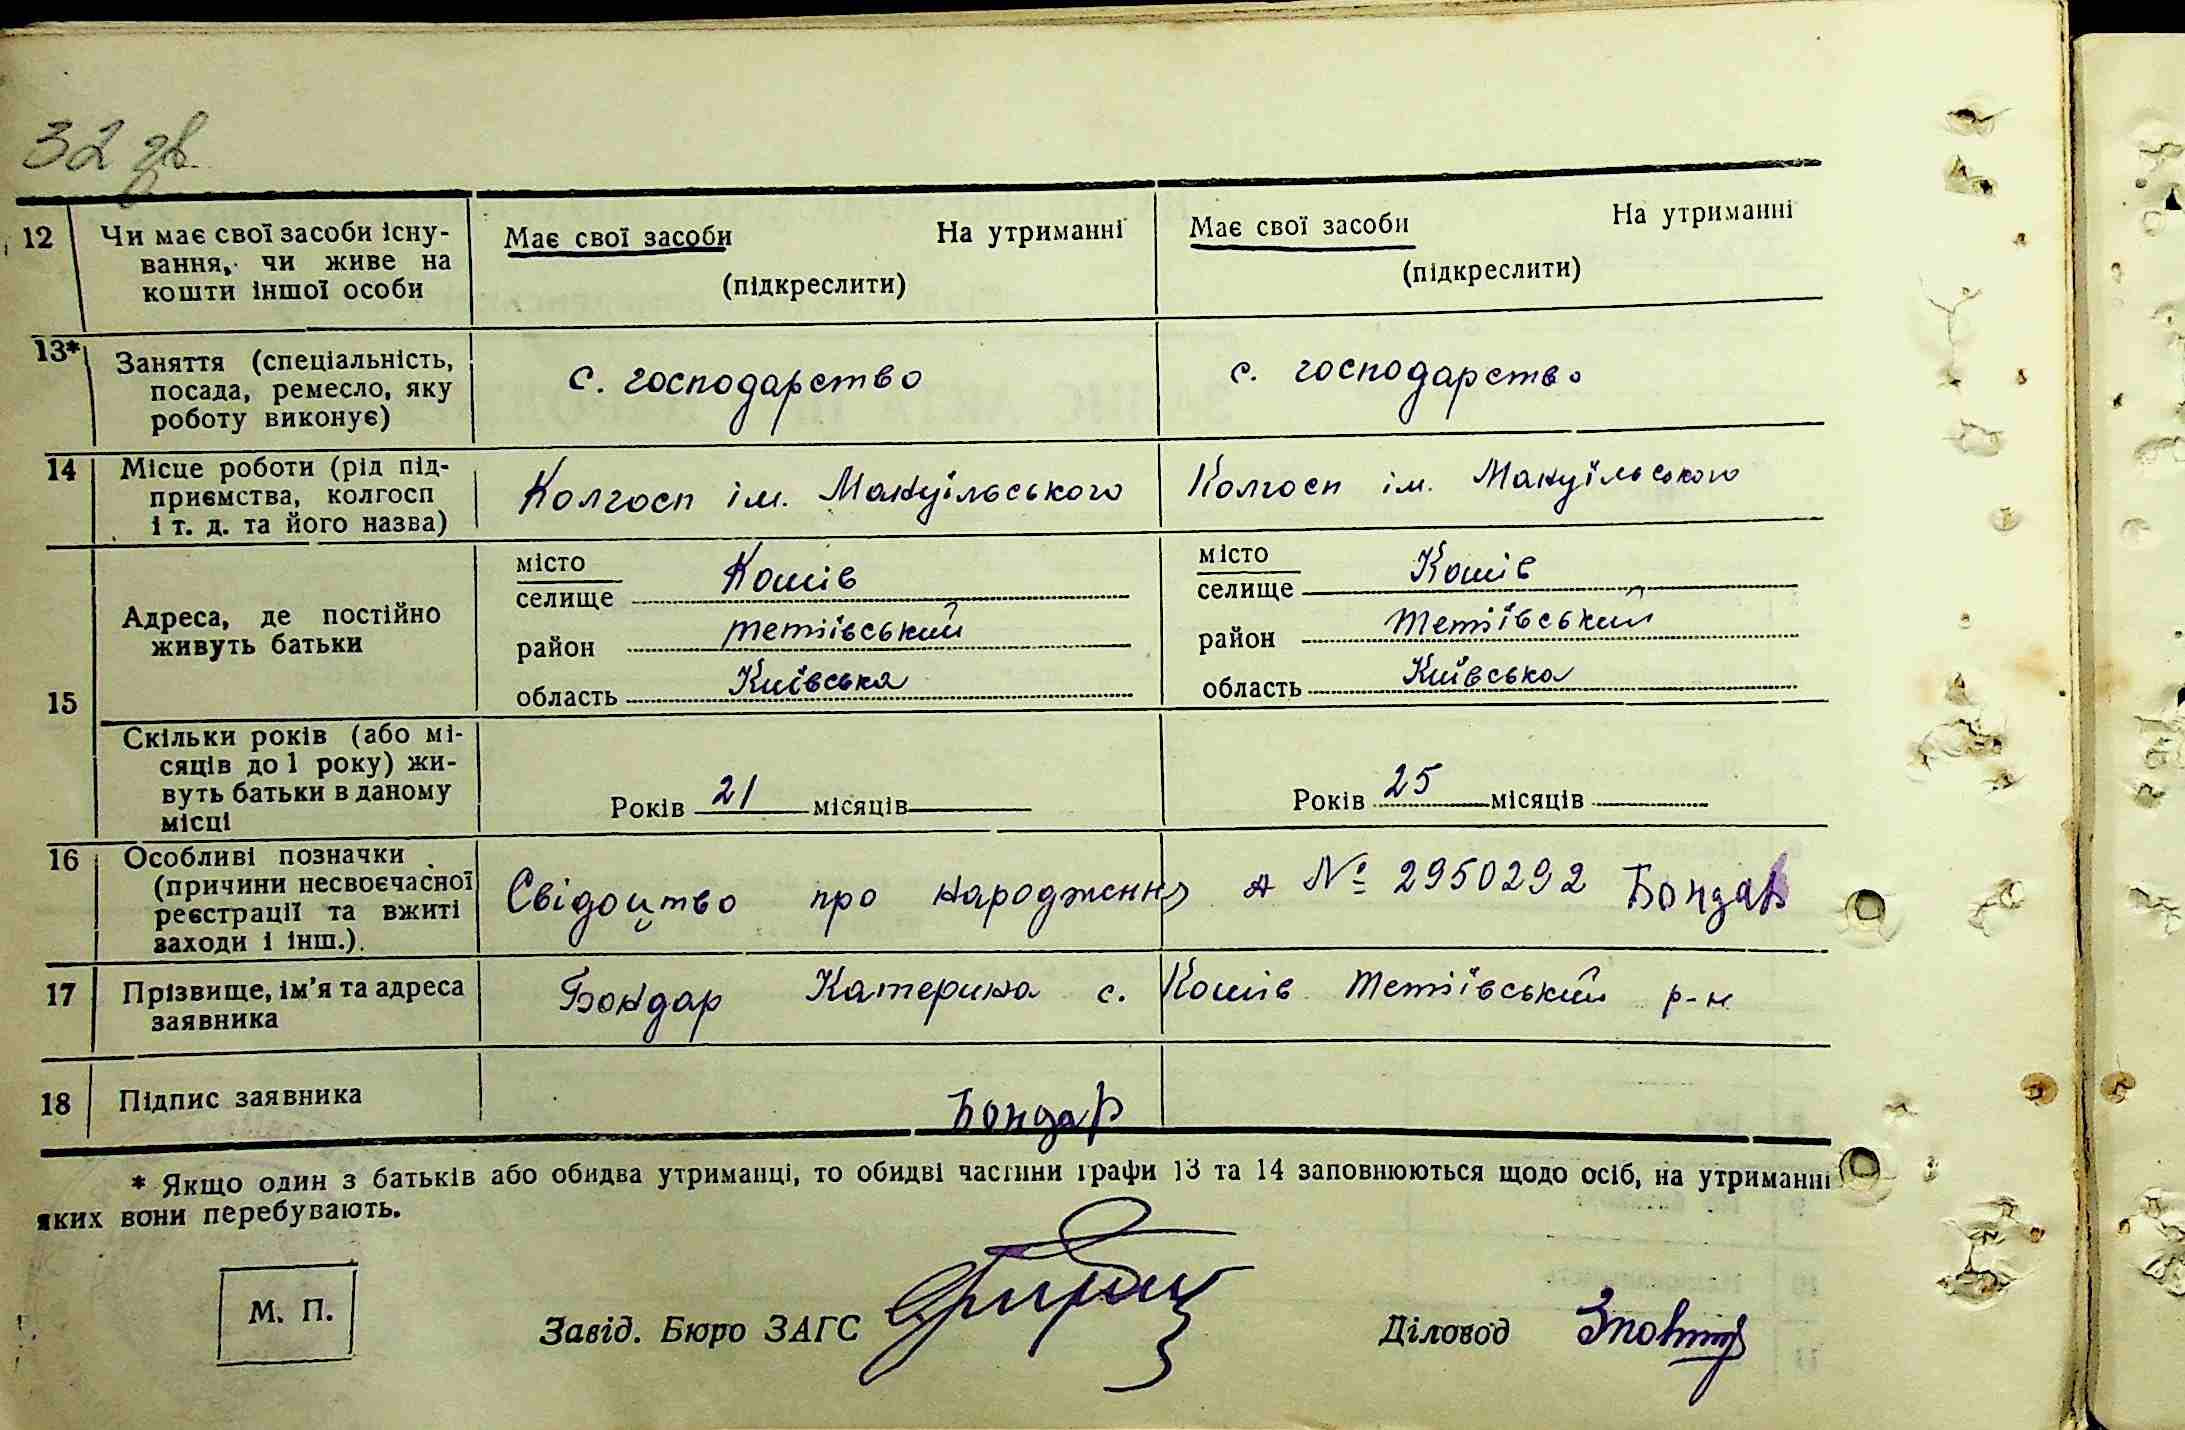 32 зв.
12 Чи має свої засоби існу-
вання, чи живе на
кошти іншої особи
Має свої засоби На утриманні
(підкреслити)
Має свої засоби На утриманні
(підкреслити)
13* Заняття (спеціальність,
посада, ремесло, яку
роботу виконує)
с. господарство
с. господарство
14 Місце роботи (рід під-
приємства, колгосп
і т. д. та його назва)
Колгосп ім. Мануїльського
Колгосп ім. Мануїльського
15
Адреса, де постійно
живуть батьки
місто
селище Кошів
район Тетіївський
область Київська
місто
селище Кошів
район Тетіївський
область Київська
Скільки років (або мі-
сяців до 1 року) жи-
вуть батьки в даному
місці
Років 21 місяців
Років 25 місяців
16 Особливі позначки
(причини несвоєчасної
реєстрації та вжиті
заходи і інш.).
Свідоцтво про народження А № 2950292 Бондар
17 Прізвище, ім'я та адреса
заявника
Бондар Катерина с. Кошів Тетіївський р-н
18 Підпис заявника
Бондар
* Якщо один з батьків або обидва утриманці, то обидві частини графи 13 та 14 заповнюються щодо осіб, на утриманні
яких вони перебувають.
М. П.
Завід. Бюро ЗАГС
Діловод